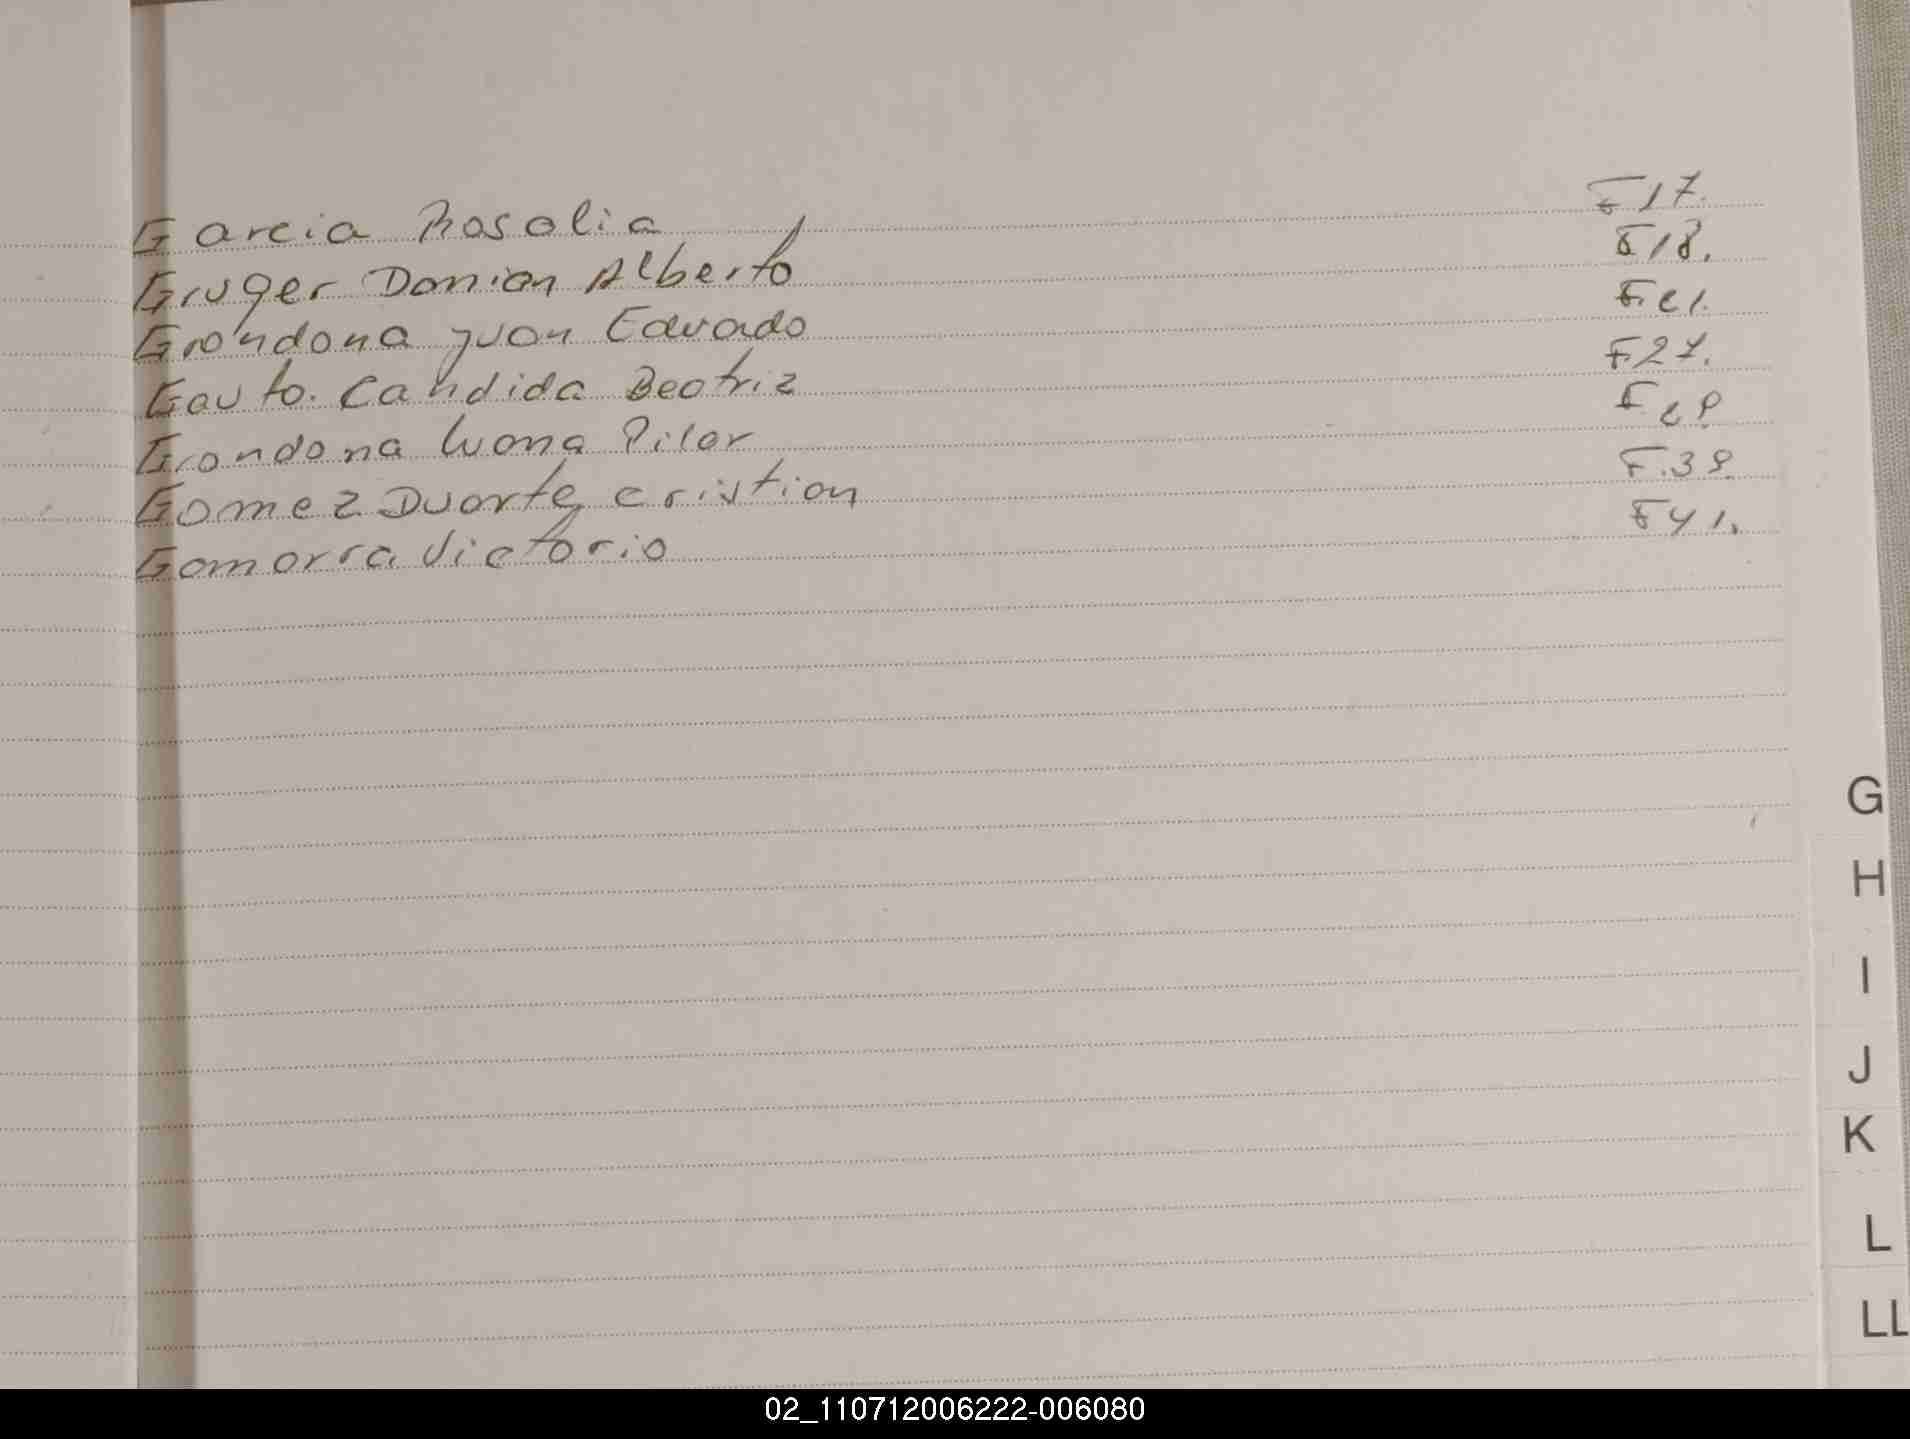 Garcia Rosalia F17.
Gruger Damian Alberto F18.
Grondona Juan Eduardo F21.
Gauto. Candida Beatriz F27.
Grondona Pilar F
Gomez Duarte cristian F.39
Gamarra Victorio F41.
G
H
I
J
K
L
LL
02_110712006222-006080